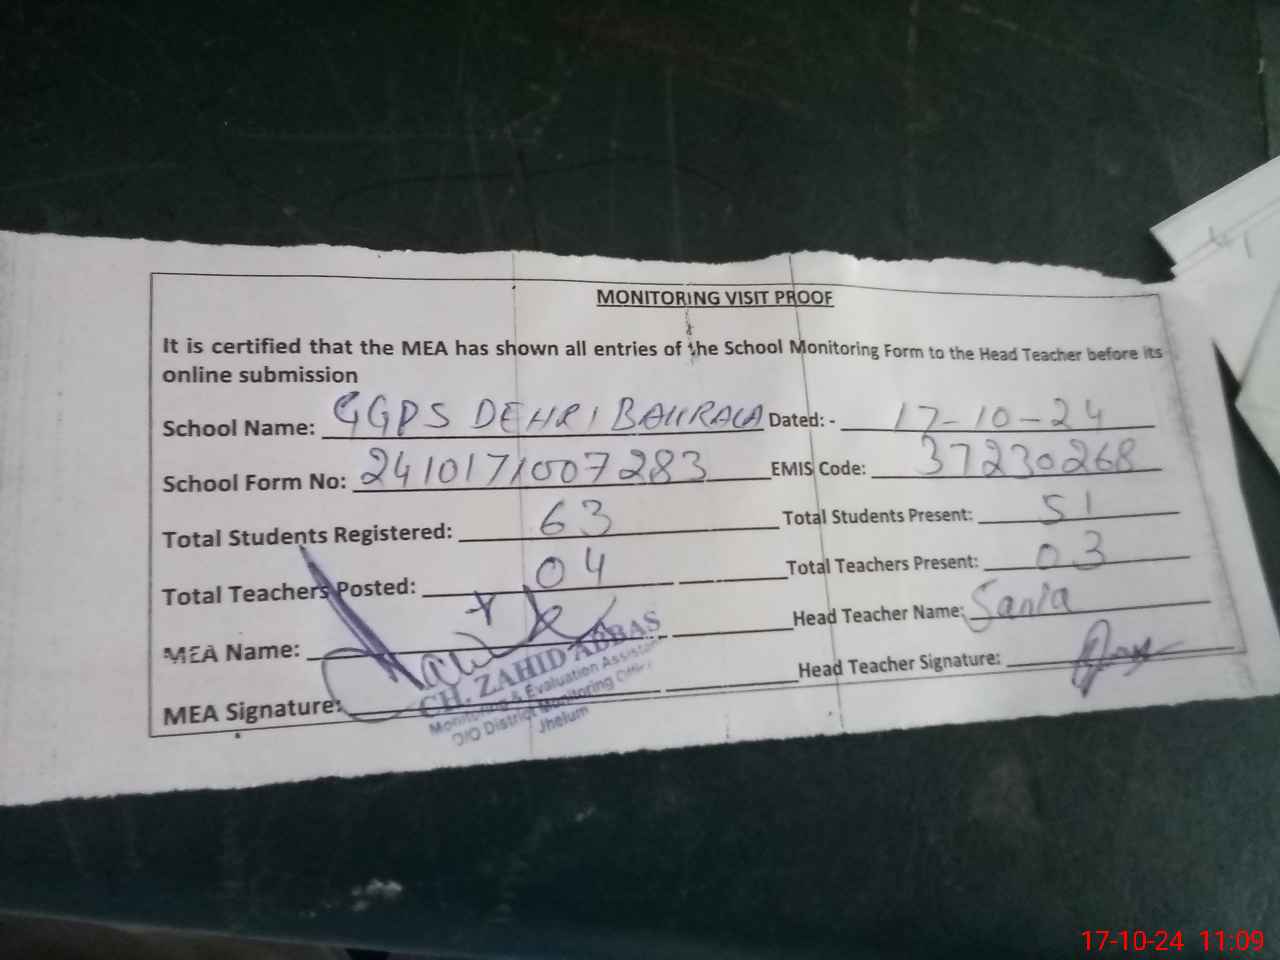 MONITORING VISIT PROOF
It is certified that the MEA has shown all entries of the School Monitoring Form to the Head Teacher before its
online submission
School Name: GGPS DEHRI BAHRALA Dated: - 17-10-24
School Form No: 2410171007283 EMIS Code: 37230268
Total Students Registered: 63 Total Students Present: 51
Total Teachers Posted: 04 Total Teachers Present: 03
MEA Name: Head Teacher Name: Sania
MEA Signature: Head Teacher Signature:
CH. ZAHID ABBAS
Monitoring & Evaluation Assistant
O/O District Monitoring Office
Jhelum
17-10-24 11:09